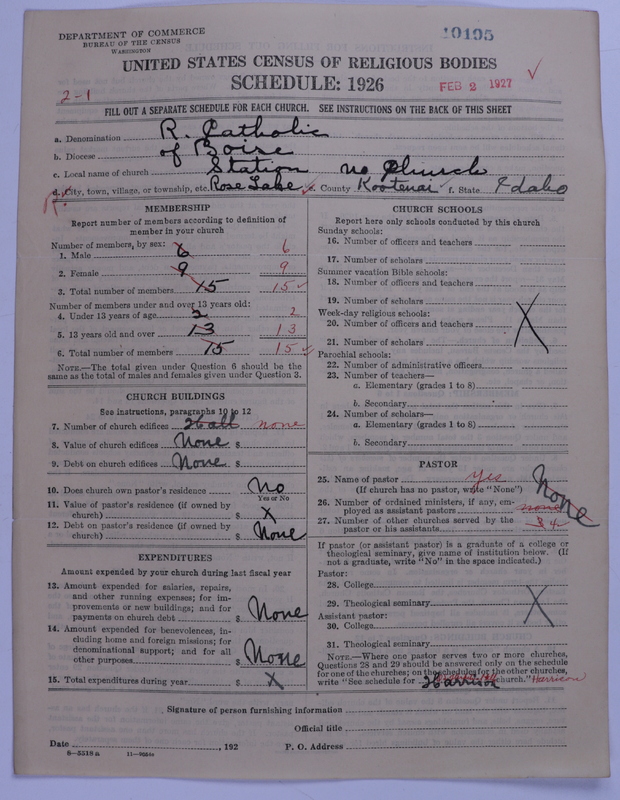 DEPARTMENT OF COMMERCE
BUREAU OF THE CENSUS
WASHINGTON
10195
UNITED STATES CENSUS OF RELIGIOUS BODIES
SCHEDULE: 1926
FEB 2 1927
2-1
FILL OUT A SEPARATE SCHEDULE FOR EACH CHURCH. SEE INSTRUCTIONS ON THE BACK OF THIS SHEET
a. Denomination R. Catholic
b. Diocese of Boise
c. Local name of church Station no Church
d. City, town, village, or township, etc. Rose Lake e. County Kootenai f. State Idaho
MEMBERSHIP
Report number of members according to definition of
member in your church
Number of members, by sex:
1. Male 6 6
2. Female 9 9
3. Total number of members 15 15
Number of members under and over 13 years old:
4. Under 13 years of age 2 2
5. 13 years old and over 13 13
6. Total number of members 15 15
NOTE.—The total given under Question 6 should be
same as the total of males and females given under Question 3.
CHURCH BUILDINGS
See instructions, paragraphs 10 to 12
7. Number of church edifices Hall none
8. Value of church edifices None $
9. Debt on church edifices None $
10. Does church own pastor's residence No
Yes or No
11. Value of pastor's residence (if owned by
church) $ X
12. Debt on pastor's residence (if owned by
church) $ None
EXPENDITURES
Amount expended by your church during last fiscal year
13. Amount expended for salaries, repairs,
and other running expenses; for im-
provements or new buildings; and for
payments on church debt $ None
14. Amount expended for benevolences, in-
cluding home and foreign missions; for
denominational support; and for all
other purposes $ None
15. Total expenditures during year $ X
CHURCH SCHOOLS
Report here only schools conducted by this church
Sunday schools:
16. Number of officers and teachers
17. Number of scholars
Summer vacation Bible schools:
18. Number of officers and teachers
19. Number of scholars
Week-day religious schools:
20. Number of officers and teachers
21. Number of scholars
Parochial schools:
22. Number of administrative officers
23. Number of teachers—
a. Elementary (grades 1 to 8)
b. Secondary
24. Number of scholars—
a. Elementary (grades 1 to 8)
b. Secondary
PASTOR
25. Name of pastor yes
(If church has no pastor, write "None") None
26. Number of ordained ministers, if any, em-
ployed as assistant pastors none
27. Number of other churches served by the
pastor or his assistants 4
If pastor (or assistant pastor) is a graduate of a college or
theological seminary, give name of institution below. (If
not a graduate, write "No" in the space indicated.)
Pastor:
28. College
29. Theological seminary
Assistant pastor:
30. College
31. Theological seminary
NOTE.—Where one pastor serves two or more churches,
Questions 28 and 29 should be answered only on the schedule
for one of the churches; on the schedules for the other churches,
write "See schedule for Harrison church." Harrison
Signature of person furnishing information
Official title
Date , 192 P. O. Address
8—5518 a